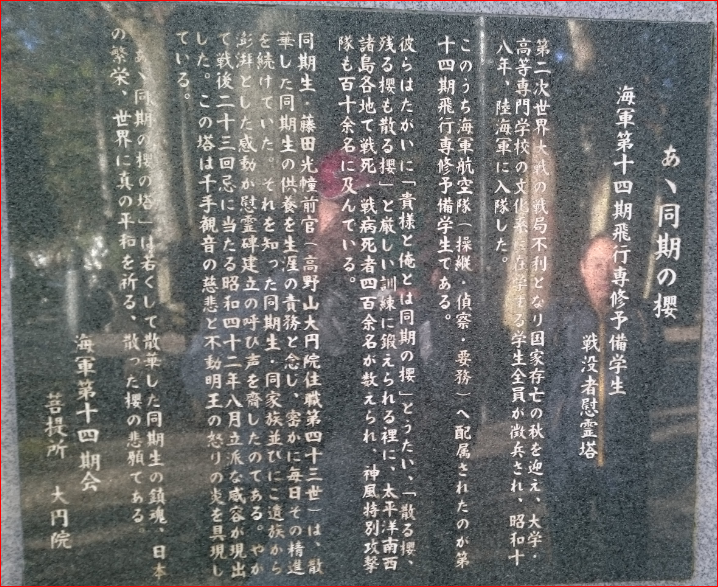 あゝ同期の櫻
海軍第十四期飛行専修予備学生
戦没者慰霊塔
第二次世界大戦の戦局不利となり国家存亡の秋を迎え、大学・
高等専門学校の文化系に在学する学生全員が徴兵され、昭和十
八年、陸海軍に入隊した。
このうち海軍航空隊(操縦・偵察・要務)へ配属されたのが第
十四期飛行専修予備学生である。
彼らはたがいに「貴様と俺とは同期の櫻」とうたい、「散る櫻、
残る櫻も散る櫻」と厳しい訓練に鍛えられる裡に、太平洋南西
諸島各地で戦死・戦病死者四百余名が数えられ、神風特別攻撃
隊も百十余名に及んでいる。
同期生・藤田光幢前官(高野山大円院住職第四十三世)は、散
華した同期生の供養を生涯の責務と念じ、密かに毎日その精進
を続けていた。それを知った同期生・同家族並びにご遺族から
澎湃とした感動が慰霊碑建立の呼び声を齎したのである。やが
て戦後二十三回忌に当たる昭和四十二年八月立派な威容が現出
した。この塔は千手観音の慈悲と不動明王の怒りの炎を具現し
ている。
「あゝ同期の櫻の塔」は若くして散華した同期生の鎮魂、日本
の繁栄、世界に真の平和を祈る、散った櫻の悲願である。
海軍第十四期会
菩提所 大円院